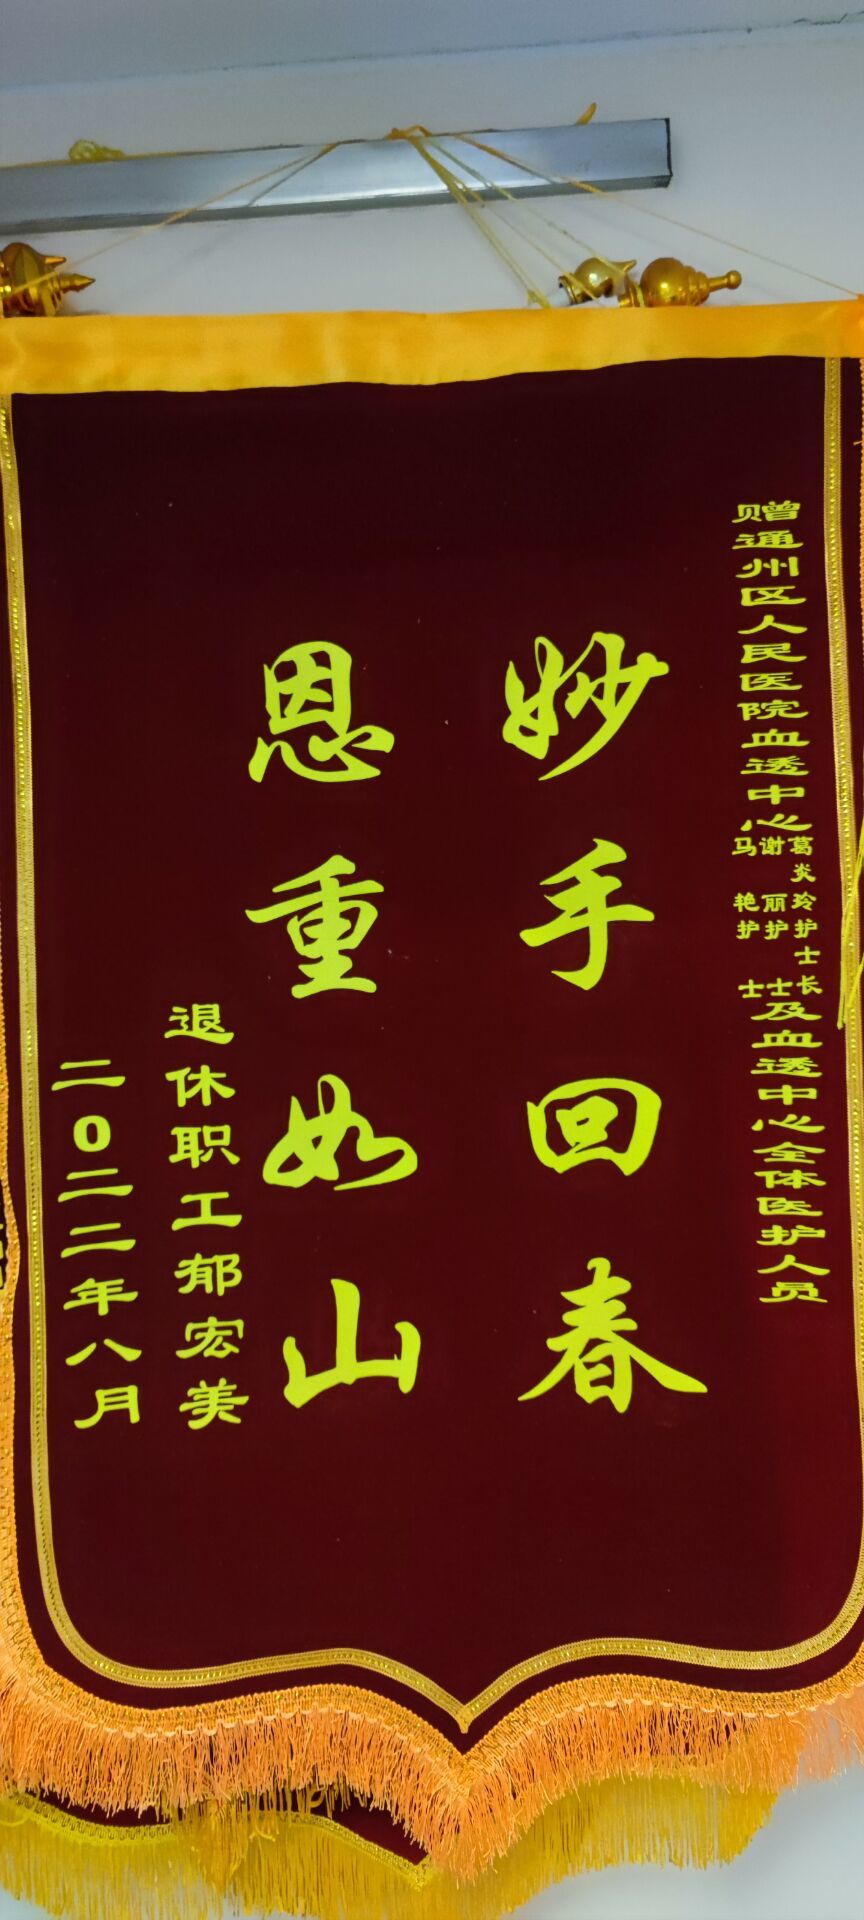 赠通州区人民医院血透中心
葛炎玲护士长
谢丽护士
马艳护士
及血透中心全体医护人员
妙手回春
恩重如山
退休职工郁宏美
二0二二年八月